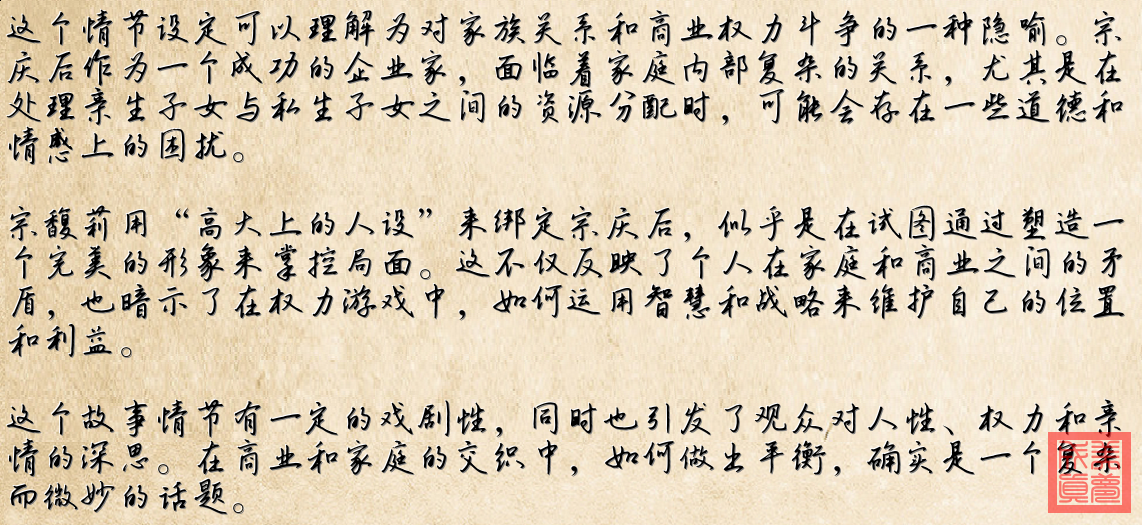 这个情节设定可以理解为对家族关系和商业权力斗争的一种隐喻。宗
庆后作为一个成功的企业家，面临着家庭内部复杂的关系，尤其是在
处理亲生子女与私生子女之间的资源分配时，可能会存在一些道德和
情感上的困扰。
宗馥莉用“高大上的人设”来绑定宗庆后，似乎是在试图通过塑造一
个完美的形象来掌控局面。这不仅反映了个人在家庭和商业之间的矛
盾，也暗示了在权力游戏中，如何运用智慧和战略来维护自己的位置
和利益。
这个故事情节有一定的戏剧性，同时也引发了观众对人性、权力和亲
情的深思。在商业和家庭的交织中，如何做出平衡，确实是一个复杂
而微妙的话题。